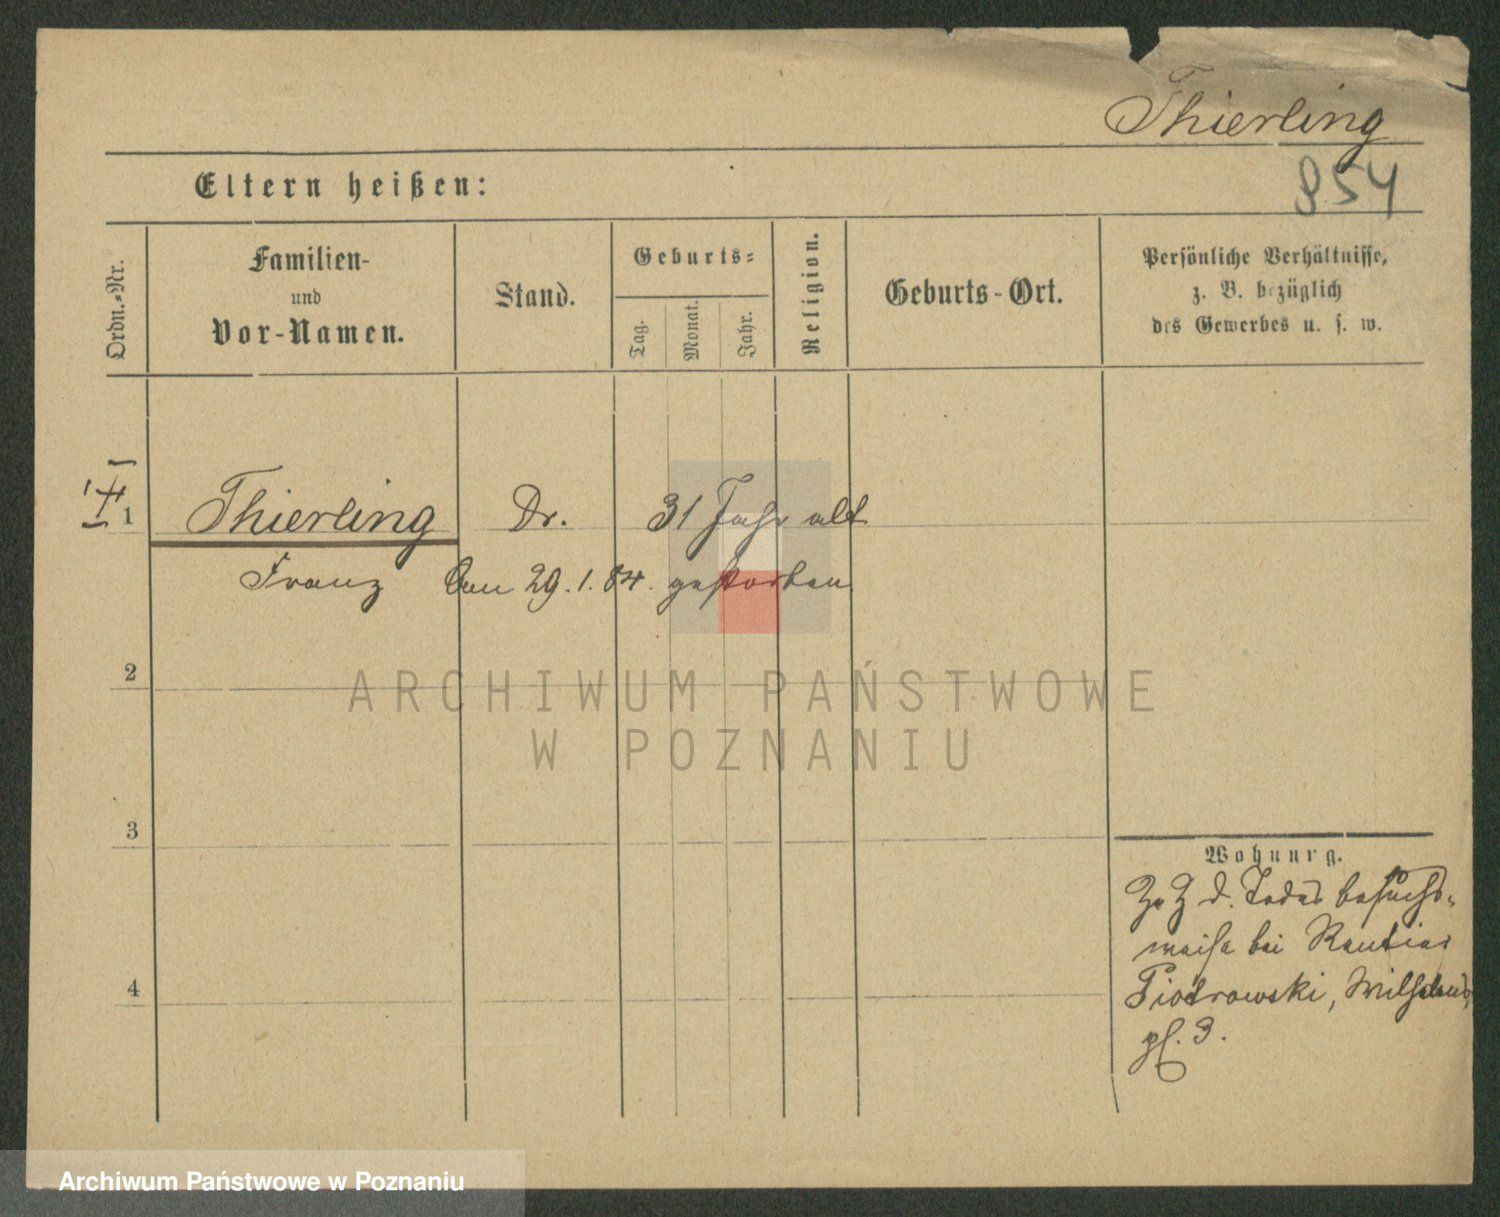 Thierling
854
Eltern heißen:
Ordn.-Nr.
Familien-
und
Vor-Namen.
Stand.
Geburts-
Tag.
Monat.
Jahr.
Religion.
Geburts-Ort.
Persönliche Verhältnisse,
z. B. bezüglich
des Gewerbes u. s. w.
1
Thierling Dr. 31 Jahr alt
Franz den 29.1.84. gestorben
2
ARCHIWUM PAŃSTWOWE
W POZNANIU
3
Wohnung.
Zr Z d. Todes besuchs-
weise bei Rentier
Piotrowski, Wilhelms
pl. 3.
4
Archiwum Państwowe w Poznaniu